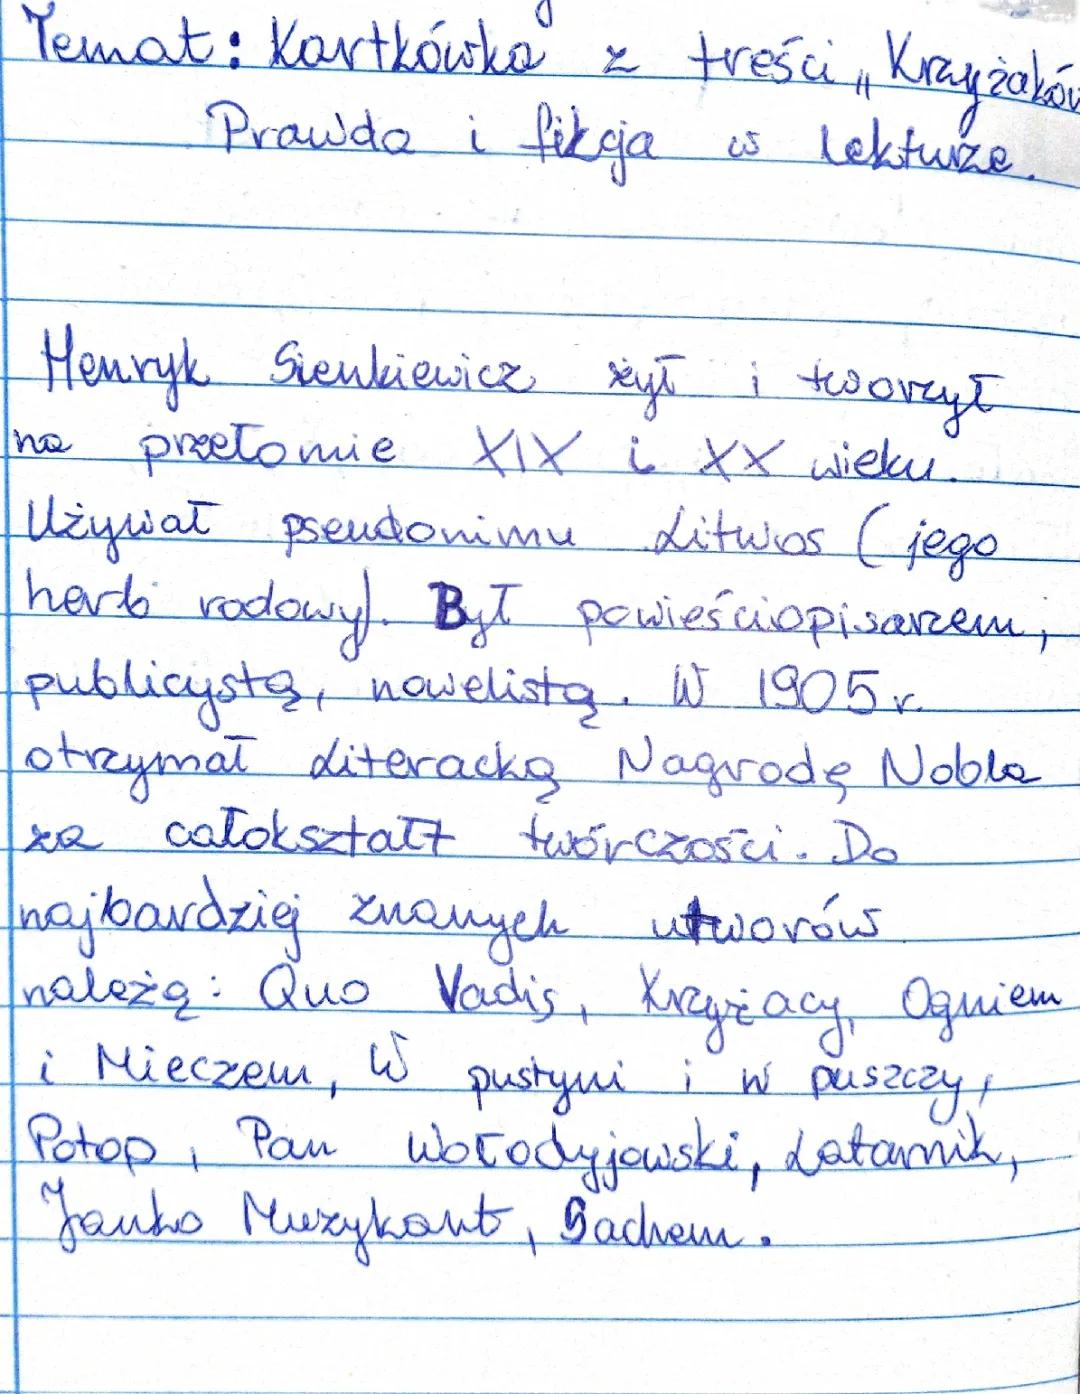 Temat: Kartkówka z treści „Krzyżaków
Prawda i fikcja w lekturze.
Henryk Sienkiewicz żył i tworzył
na przełomie XIX i XX wieku.
Używał pseudonimu Litwos (jego
herb rodowy). Był powieściopisarzem,
publicystą, nowelistą. W 1905 r.
otrzymał Literacką Nagrodę Nobla
za całokształt twórczości. Do
najbardziej znanych utworów
należą: Quo Vadis, Krzyżacy, Ogniem
i Mieczem, W pustyni i w puszczy,
Potop, Pan Wołodyjowski, Latarnik,
Janko Muzykant, Sachem.